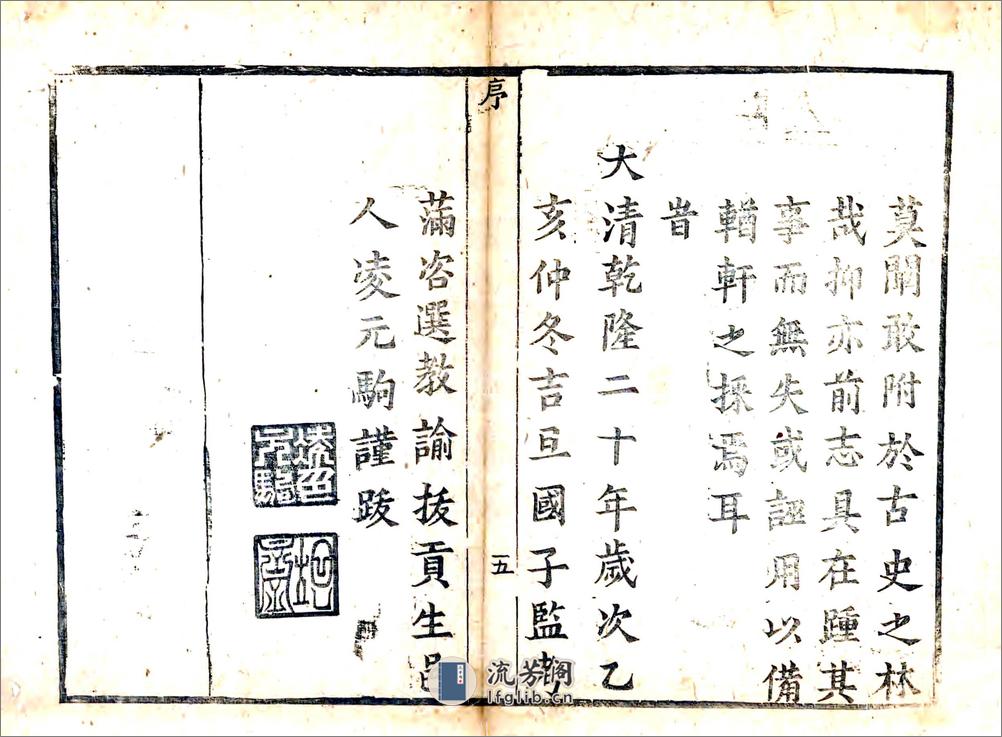 莫闕敢附於古史之林
哉抑亦前志具在踵其
事而無失或誣用以備
輶軒之採焉耳
旹
大清乾隆二十年歲次乙
亥仲冬吉亘國子監
序
五
滿咨選教諭拔貢生邑
人凌元駒謹跋
流芳阁
lfglib.cn